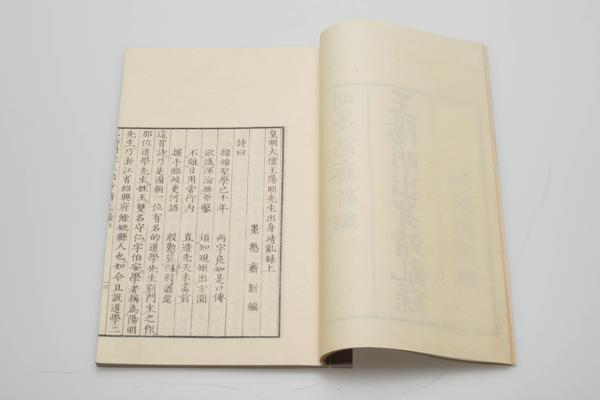 皇明大儒王陽明先生出身靖亂錄上
墨憨齋新編
詩曰
綿綿聖學已千年　兩字良知是口傳
欲識渾淪無斧鑿　須知規矩出方圓
不離日用常行內　直造先天未畫前
握手臨岐更何語　殷勤莫愧別離筵
這首詩乃是國朝一位有名的道學先生別門生之作
那位道學先生姓王雙名守仁字伯安學者稱為陽明
先生乃浙江省紹興府餘姚縣人也如今且說道學二
王陽明出身靖亂錄
明墨憨齋新編